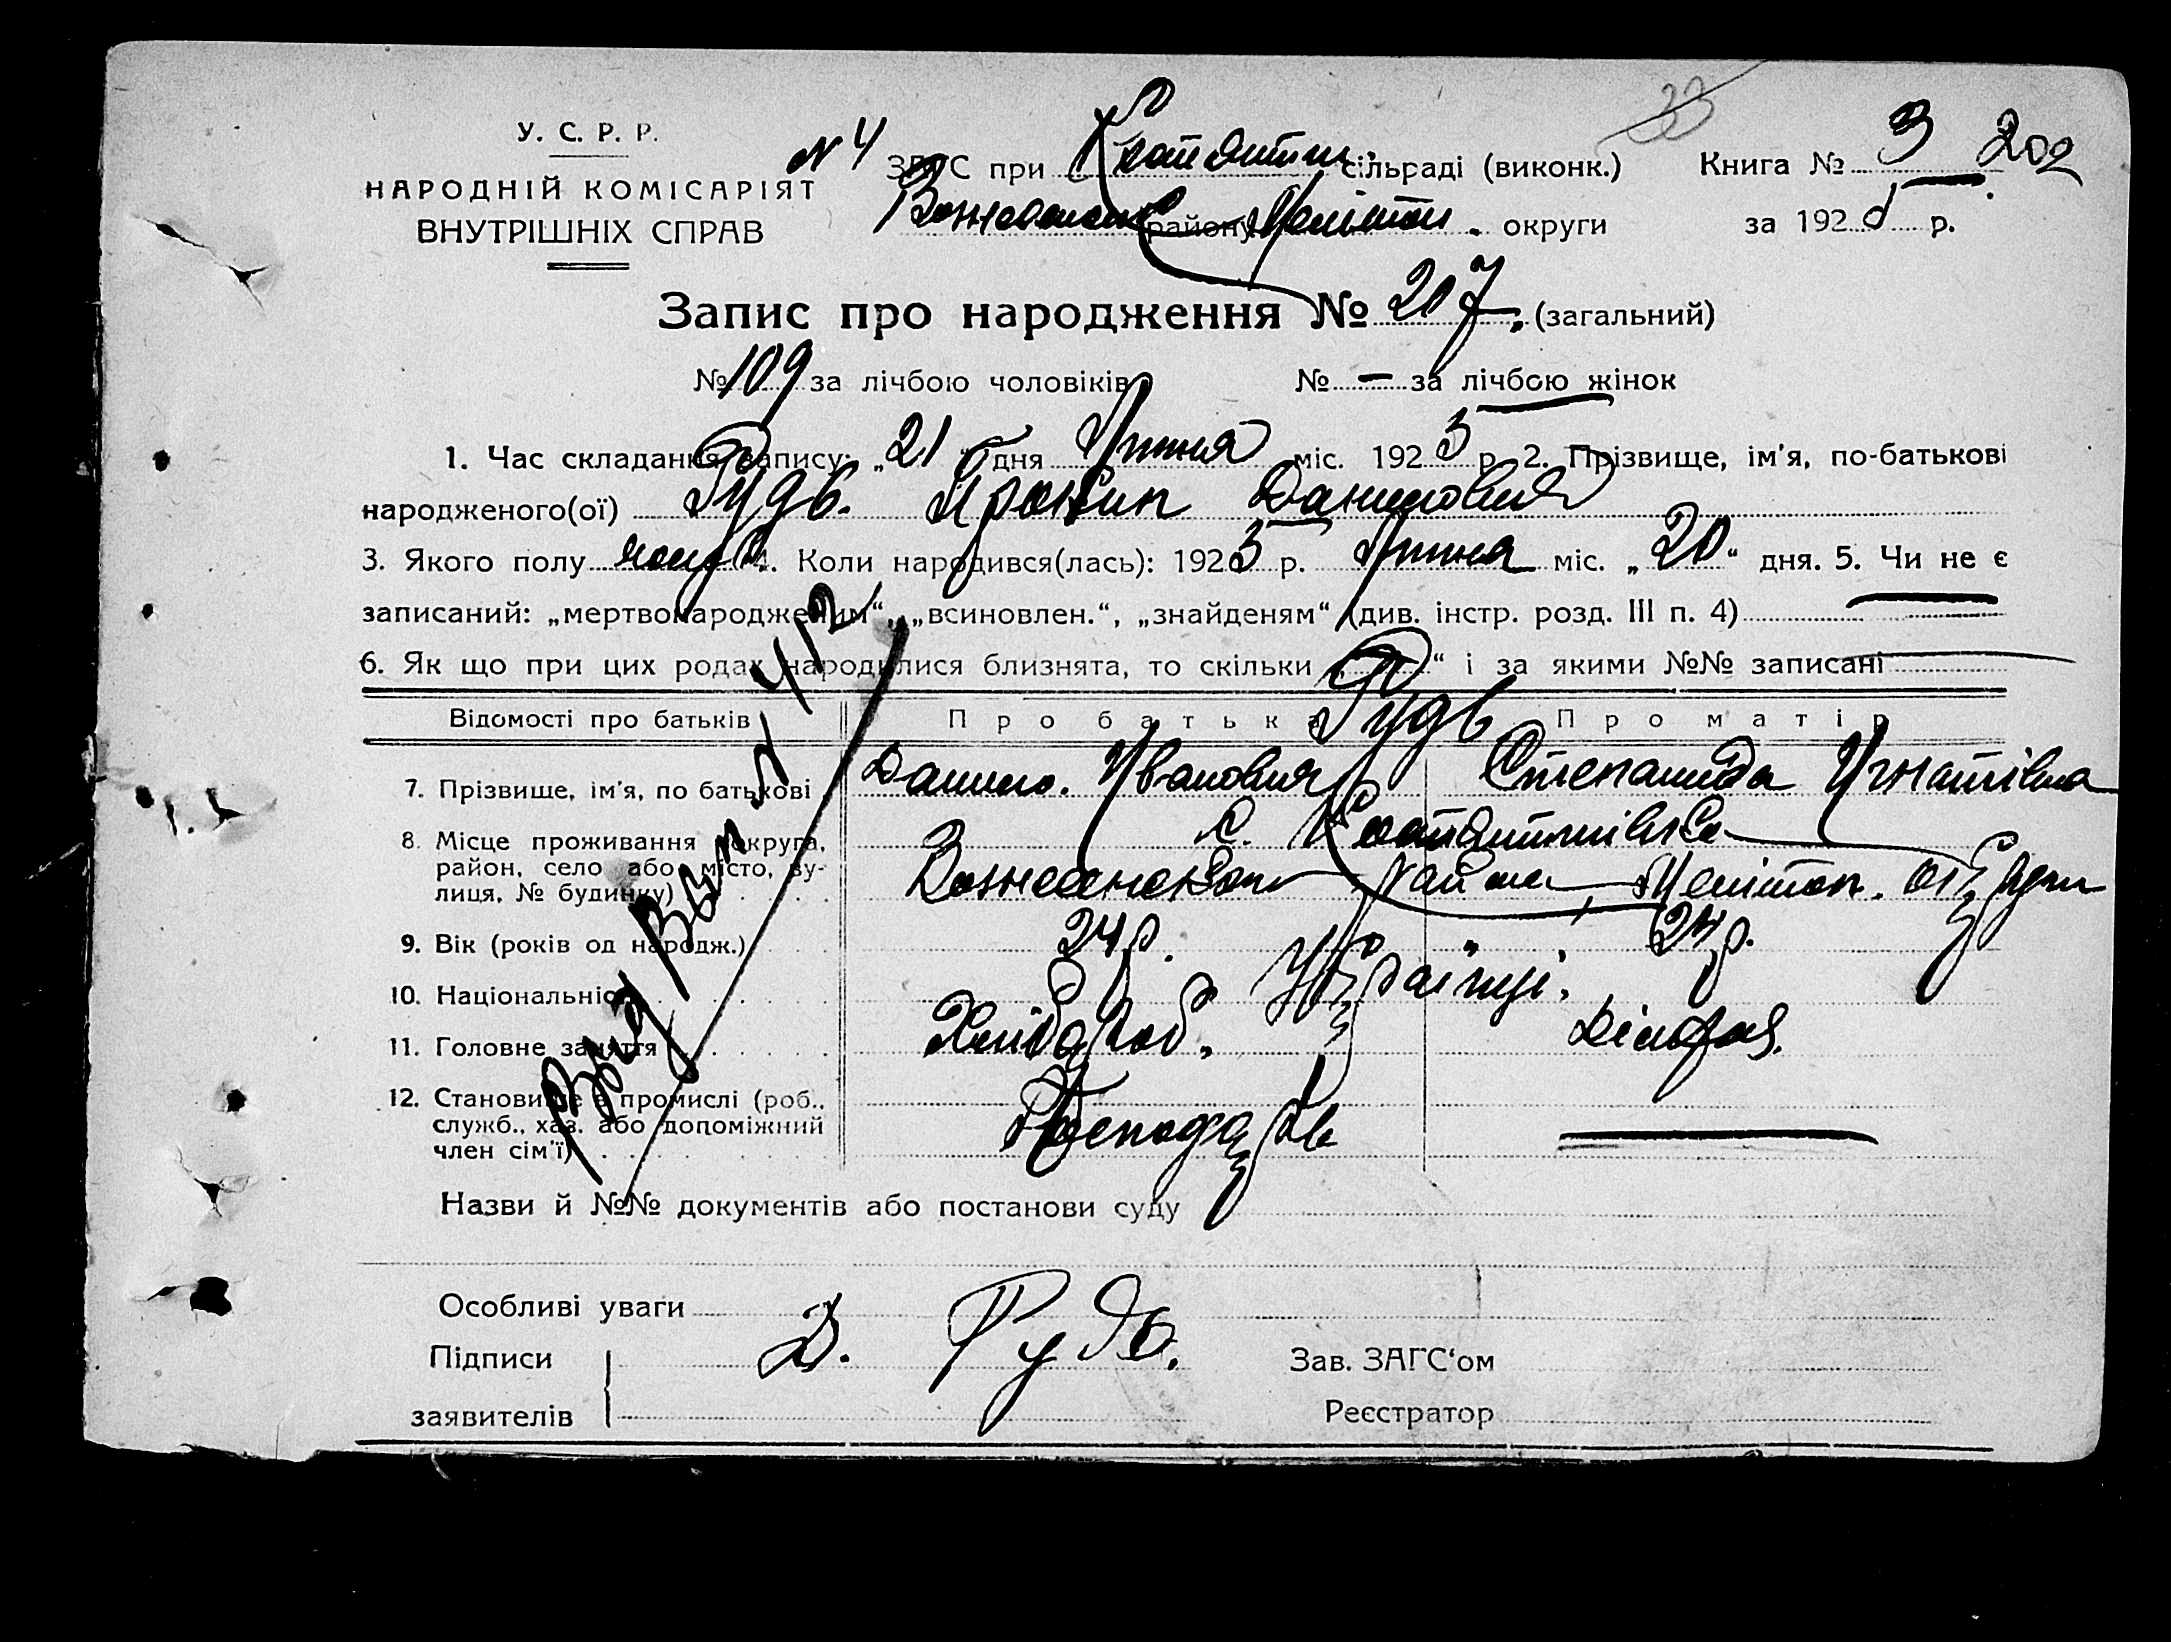 33
У. С. Р. Р.
НАРОДНІЙ КОМІСАРІЯТ
ВНУТРІШНІХ СПРАВ
N 4 ЗАГС при Костянтин. сільраді (виконк.) Книга № 3 202
Вознесенськ району Мелітоп. округи за 1925 р.
Запис про народження № 217. (загальний)
№ 109 за лічбою чоловіків № — за лічбою жінок
1. Час складання запису: „21“ дня Липня міс. 1925 р. 2. Прізвище, ім'я, по-батькові
народженого(ої) Рудь. Прокип Данилович
3. Якого полу чолов. 4. Коли народився(лась): 1925 р. Липня міс. „20“ дня. 5. Чи не є
записаний: „мертвонародженим“, „всиновлен.“, „знайденям“ (див. інстр. розд. III п. 4)
6. Як що при цих родах народилися близнята, то скільки „ “ і за якими №№ записані
Відомості про батьків Про батька Про матір
Рудь
7. Прізвище, ім'я, по батькові Данило. Іванович Степанида Ігнатівна
8. Місце проживання (округа, район, село або місто, вулиця, № будинку) с. Костянтинівка
Вознесенського району Мелітоп. округи
9. Вік (років од народж.) 24 р. „ 24 р.
10. Національність Українці.
11. Головне заняття Хлібороб.
12. Становище в промислі (роб., служб., хаз. або допоміжний член сім'ї) Господарь
Назви й №№ документів або постанови суду
Особливі уваги
Підписи Д. Рудь. Зав. ЗАГС‘ом
заявителів Реєстратор